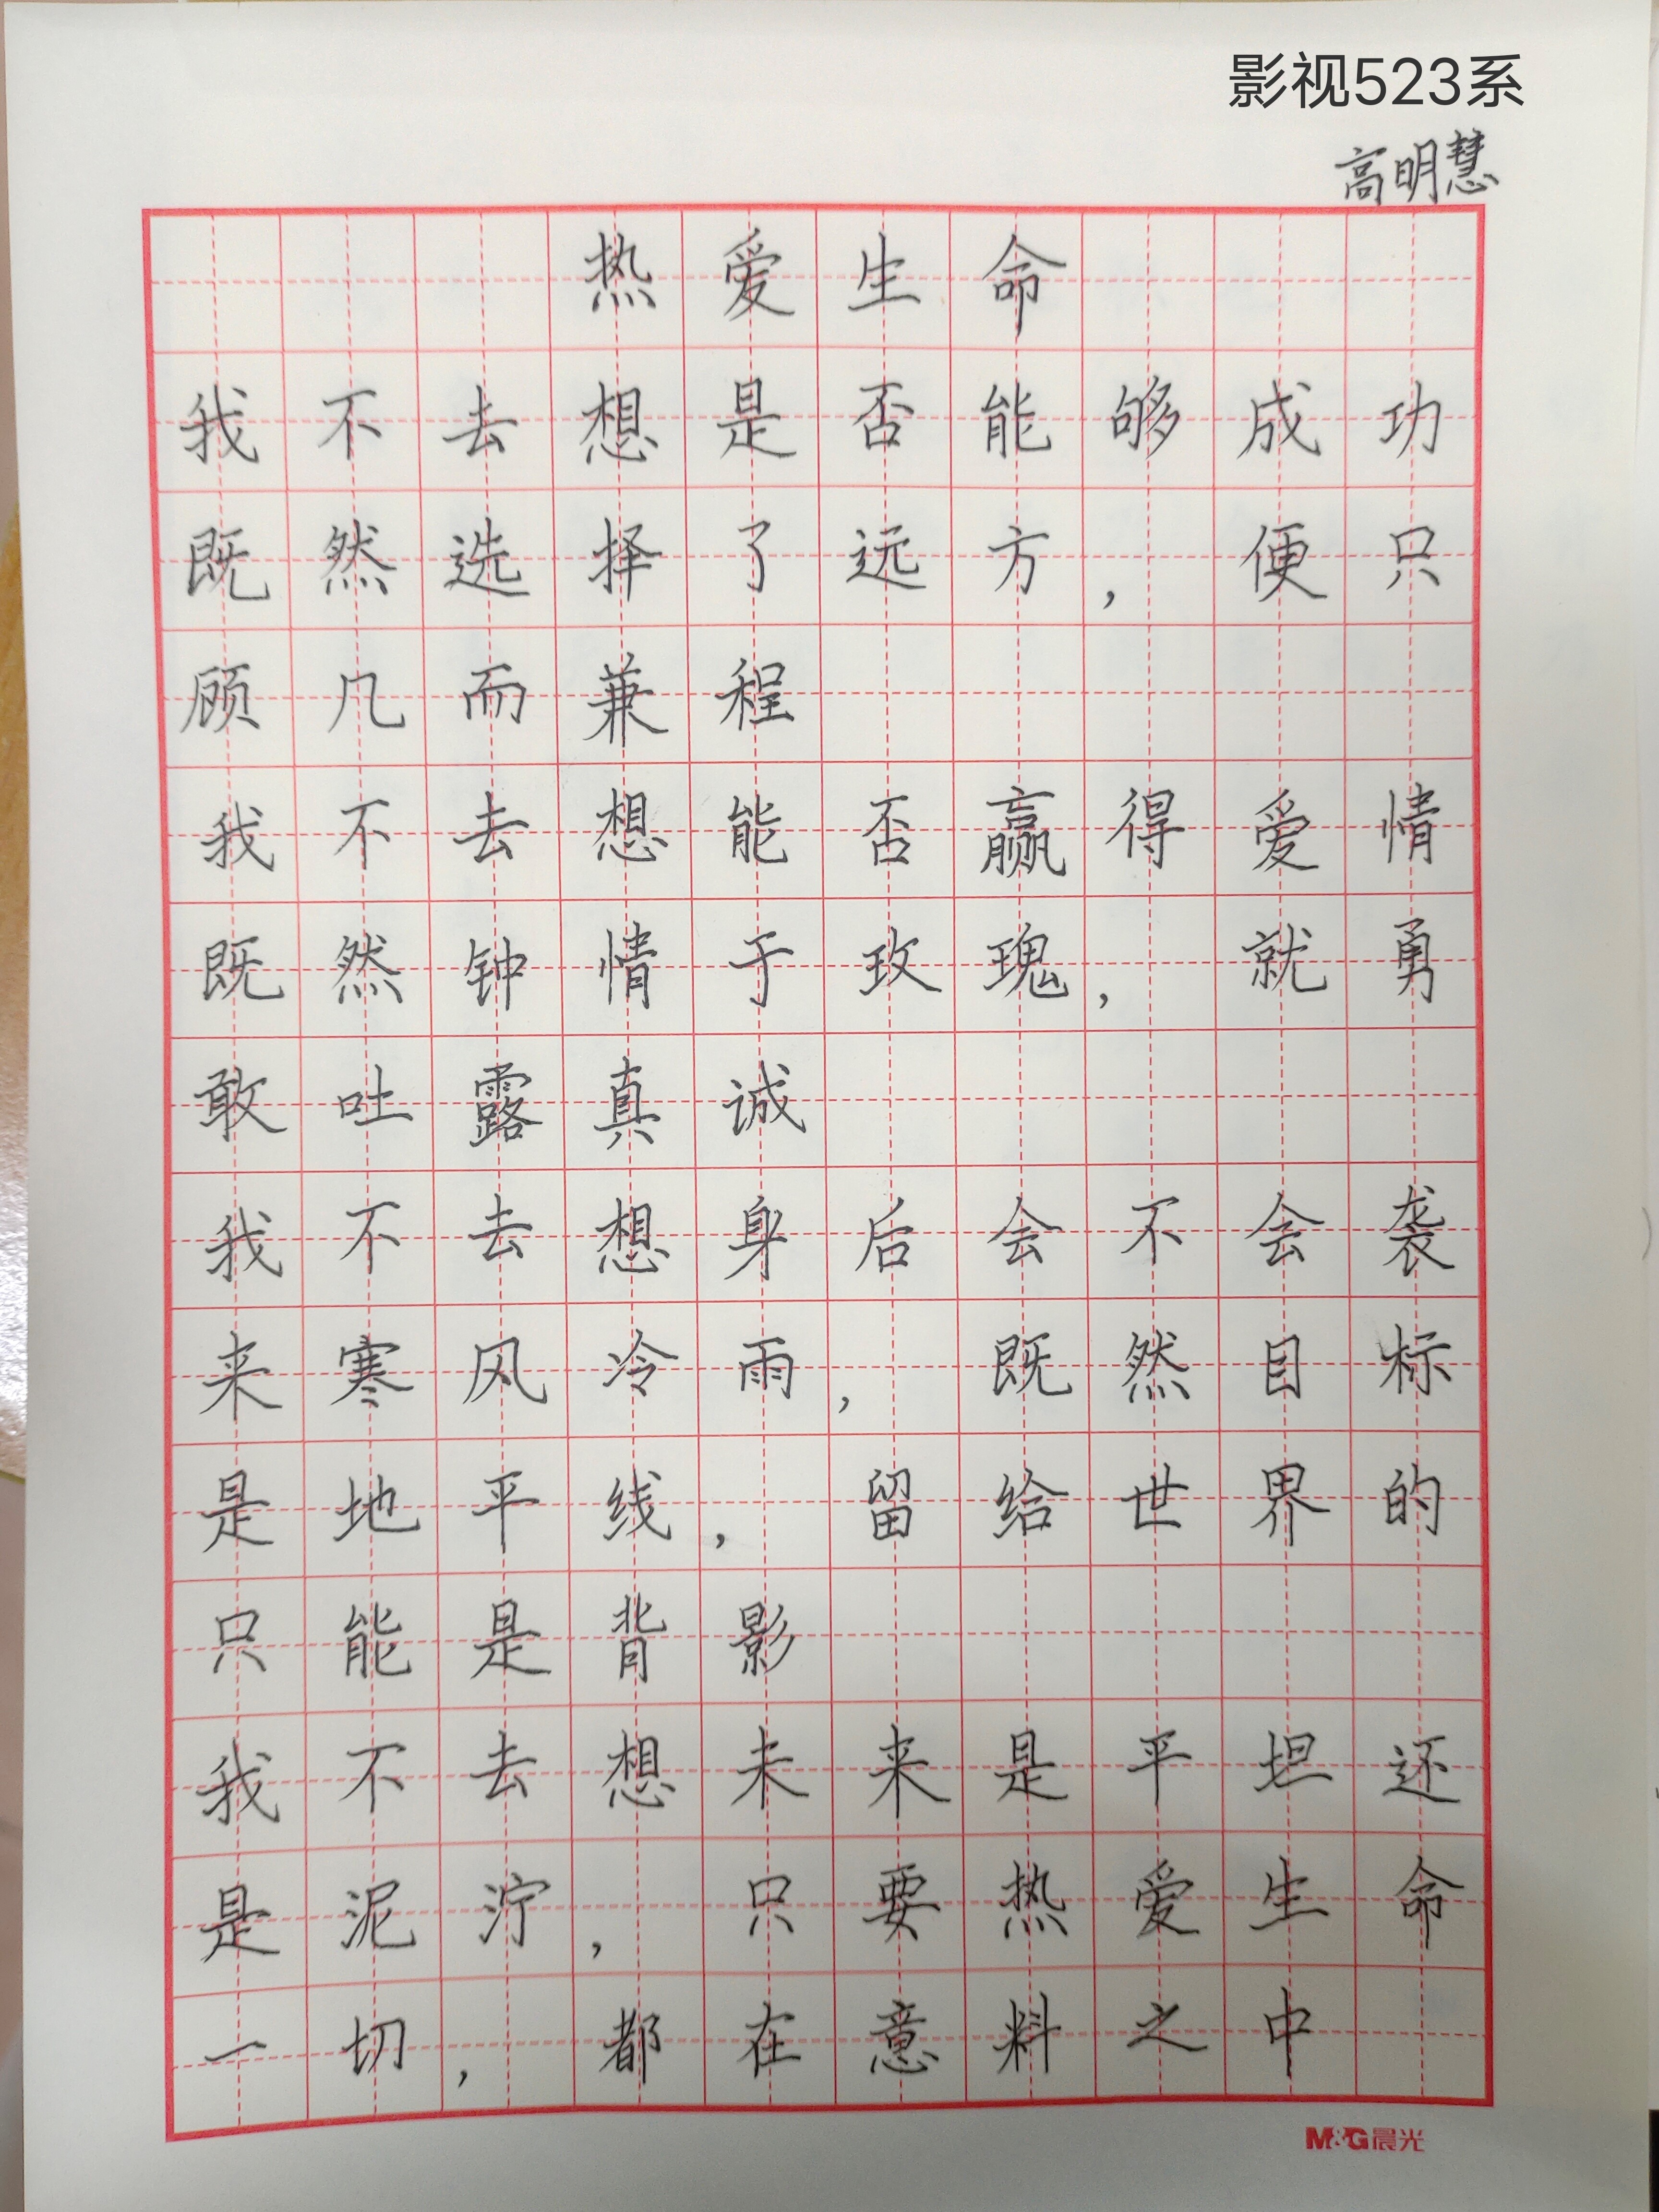 影视523系
高明慧
热爱生命
我不去想是否能够成功
既然选择了远方，便只
顾几而兼程
我不去想能否赢得爱情
既然钟情于玫瑰，就勇
敢吐露真诚
我不去想身后会不会袭
来寒风冷雨，既然目标
是地平线，留给世界的
只能是背影
我不去想未来是平坦还
是泥泞，只要热爱生命
一切，都在意料之中
M&G晨光